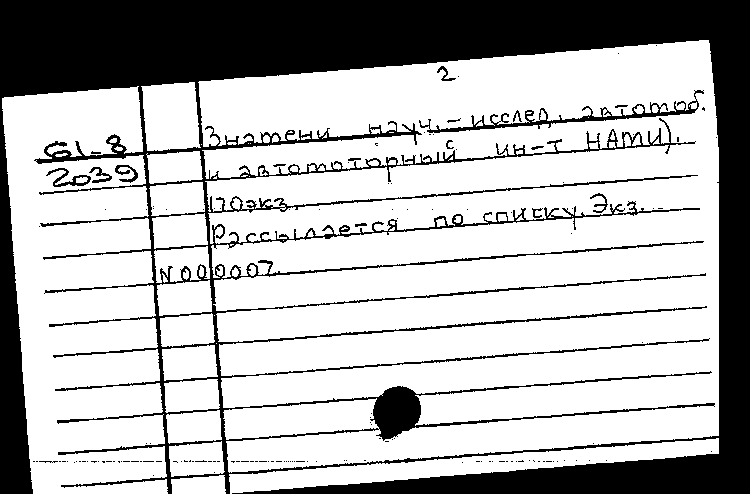 2
61-8
2039
Знамени науч.-исслед. автомоб.
и автомоторный ин-т НАМИ).
170экз.
Рассылается по списку. Экз.
N000007.